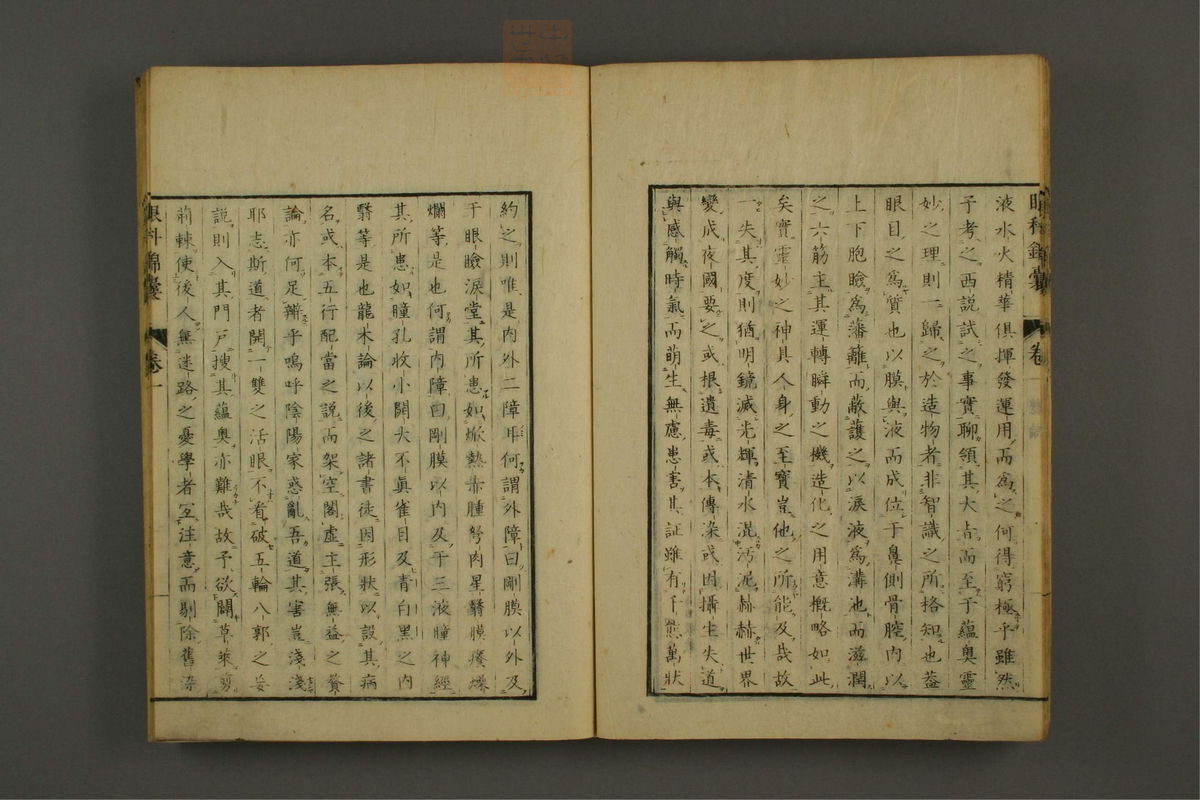 眼科錦囊 卷一
液水火精華俱揮發運用而爲之何得窮極乎雖然
予考之西説試之事實聊領其大旨而至于蘊奧靈
妙之理則一歸之於造物者非智識之所格知也蓋
眼目之爲質也以膜與液而成位于鼻側骨腔内以
上下胞瞼爲藩籬而蔽護之以淚液爲溝池也而滋潤
之六筋主其運轉瞬動之機造化之用意概略如此
矣實靈妙之神具人身之至寶豈他之所能及哉故
一失其度則猶明鏡滅光輝清水混汚泥赫赫世界
變成夜國要之或根遺毒或本傳染或因攝生失道
與感觸時氣而萌生無慮患害其証雖有千態萬狀
約之則唯是内外二障耳何謂外障曰剛膜以外及
于眼瞼淚堂其所患如焮熱赤腫努肉星翳膜瘻爛
爛等是也何謂内障曰剛膜以内及于三液瞳神經
其所患如瞳孔收小開大不眞雀目及青白黑之内
翳等是也龍木論以後之諸書徒因形狀以設其病
名或本五行配當之説而架空閣虛主張無益之贅
論亦何足辨乎嗚呼陰陽家惑亂吾道其害豈淺淺
耶志斯道者開一雙之活眼不看破五輪八郭之妄
説則入其門戸搜其蘊奧亦難哉故予欲闢草萊剪
荊棘使後人無迷路之憂學者宜注意而剔除舊染
眼科錦囊 卷一